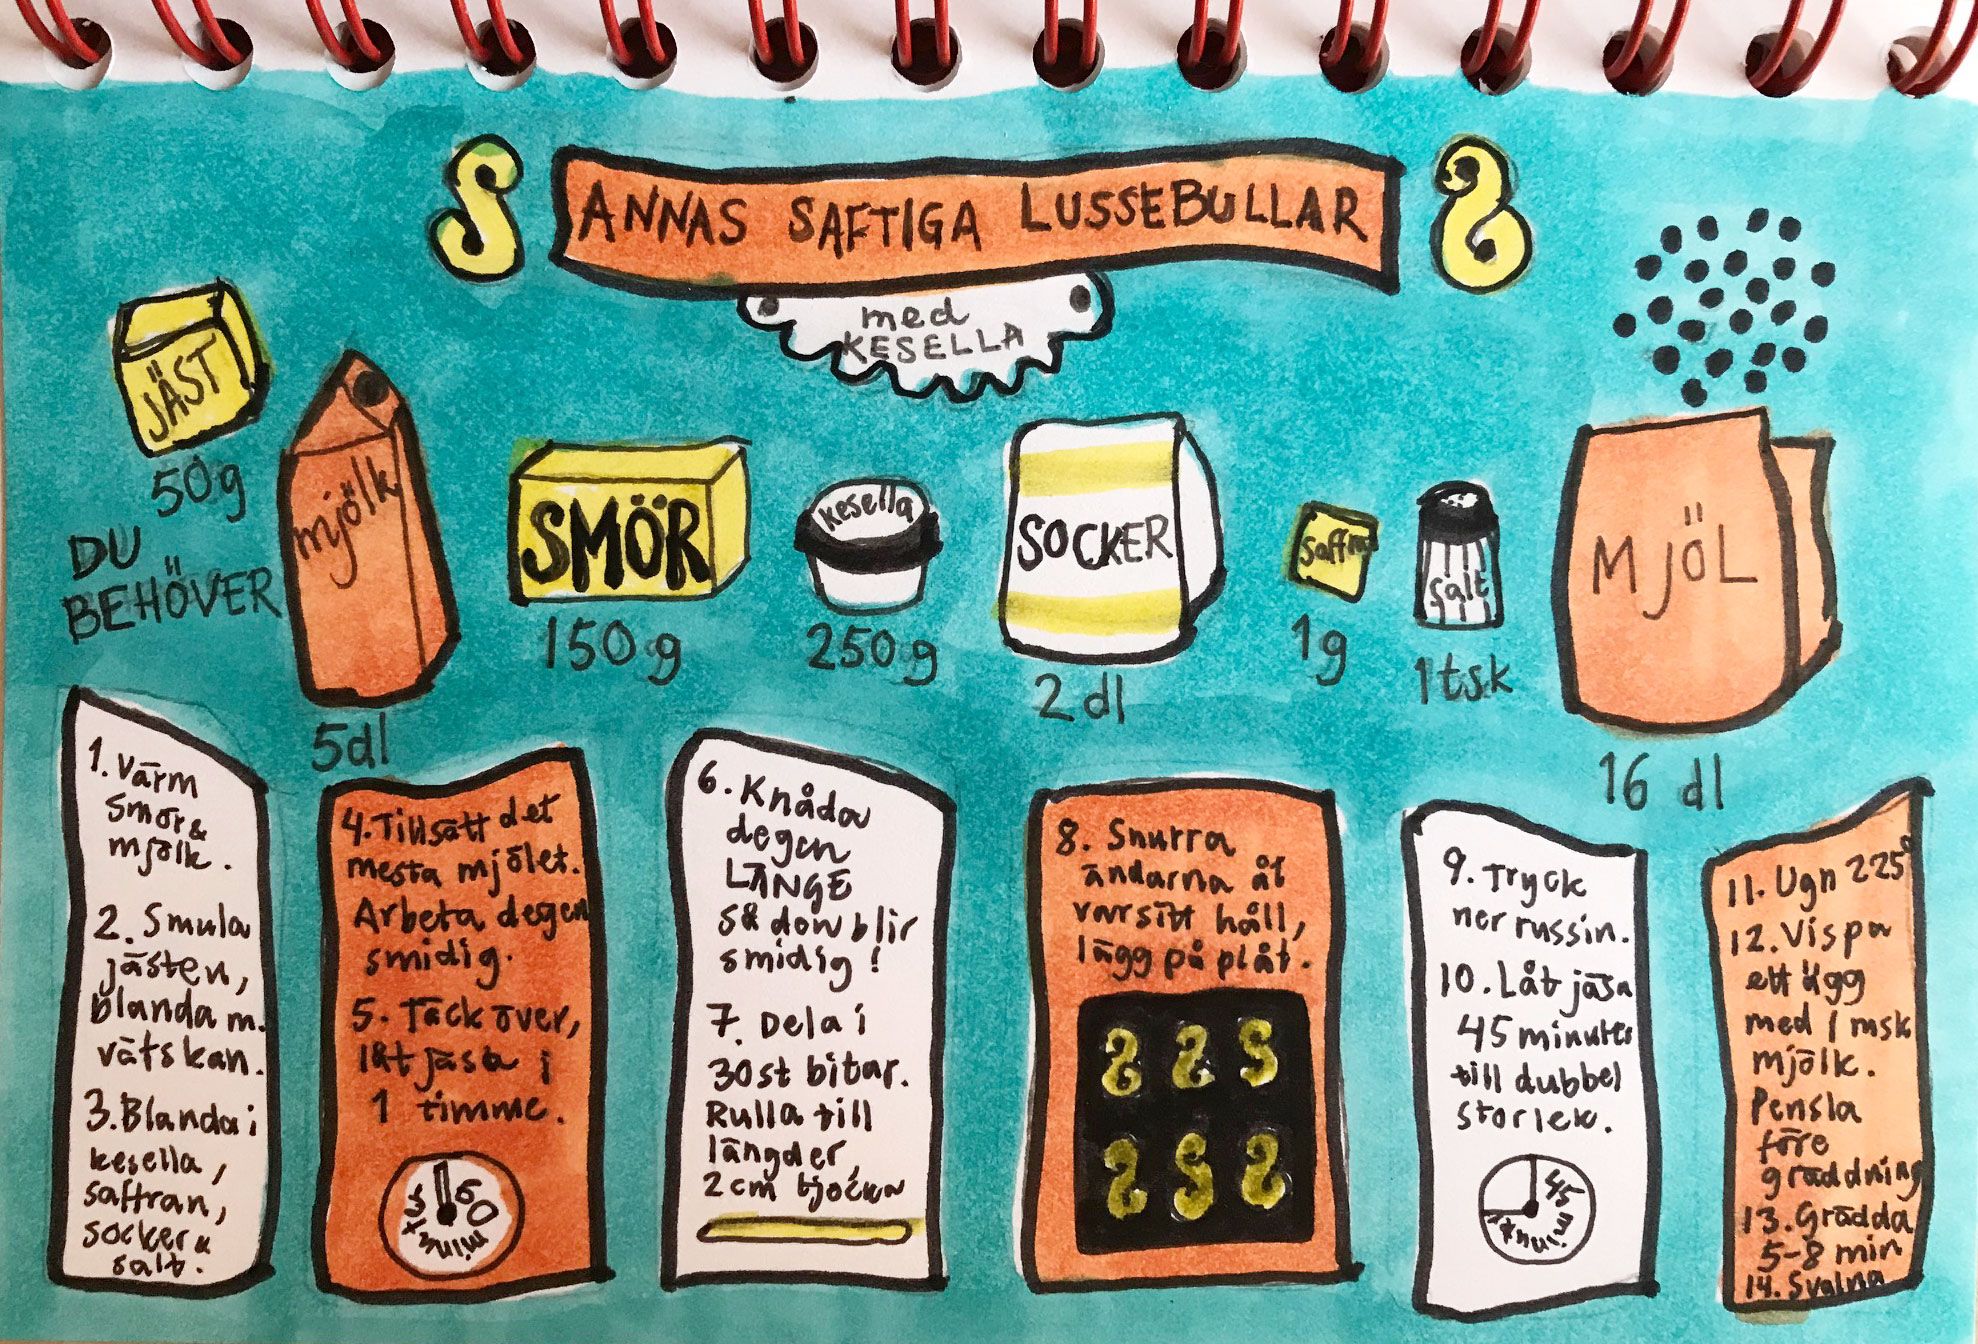 ANNAS SAFTIGA LUSSEBULLAR
med
KESELLA
DU
BEHÖVER
JÄST
50g
mjölk
5dl
SMÖR
150g
kesella
250g
SOCKER
2 dl
Saffran
1g
Salt
1 tsk
MJÖL
16 dl
1. Värm
smör &
mjölk.
2. Smula
jästen,
blanda m.
vätskan.
3. Blanda i
kesella,
saffran,
socker &
salt.
4. Tillsätt det
mesta mjölet.
Arbeta degen
smidig.
5. Täck över,
låt jäsa i
1 timme.
60
minuter
6. Knåda
degen
LÄNGE
så den blir
smidig!
7. Dela i
30st bitar.
Rulla till
längder,
2cm tjocka
8. Snurra
ändarna åt
varsitt håll,
lägg på plåt.
9. Tryck
ner russin.
10. Låt jäsa
45 minuter
till dubbel
storlek.
45
minuter
11. Ugn 225°
12. Vispa
ett ägg
med 1 msk
mjölk.
Pensla
före
gräddning
13. Grädda
5-8 min
14. Svalna